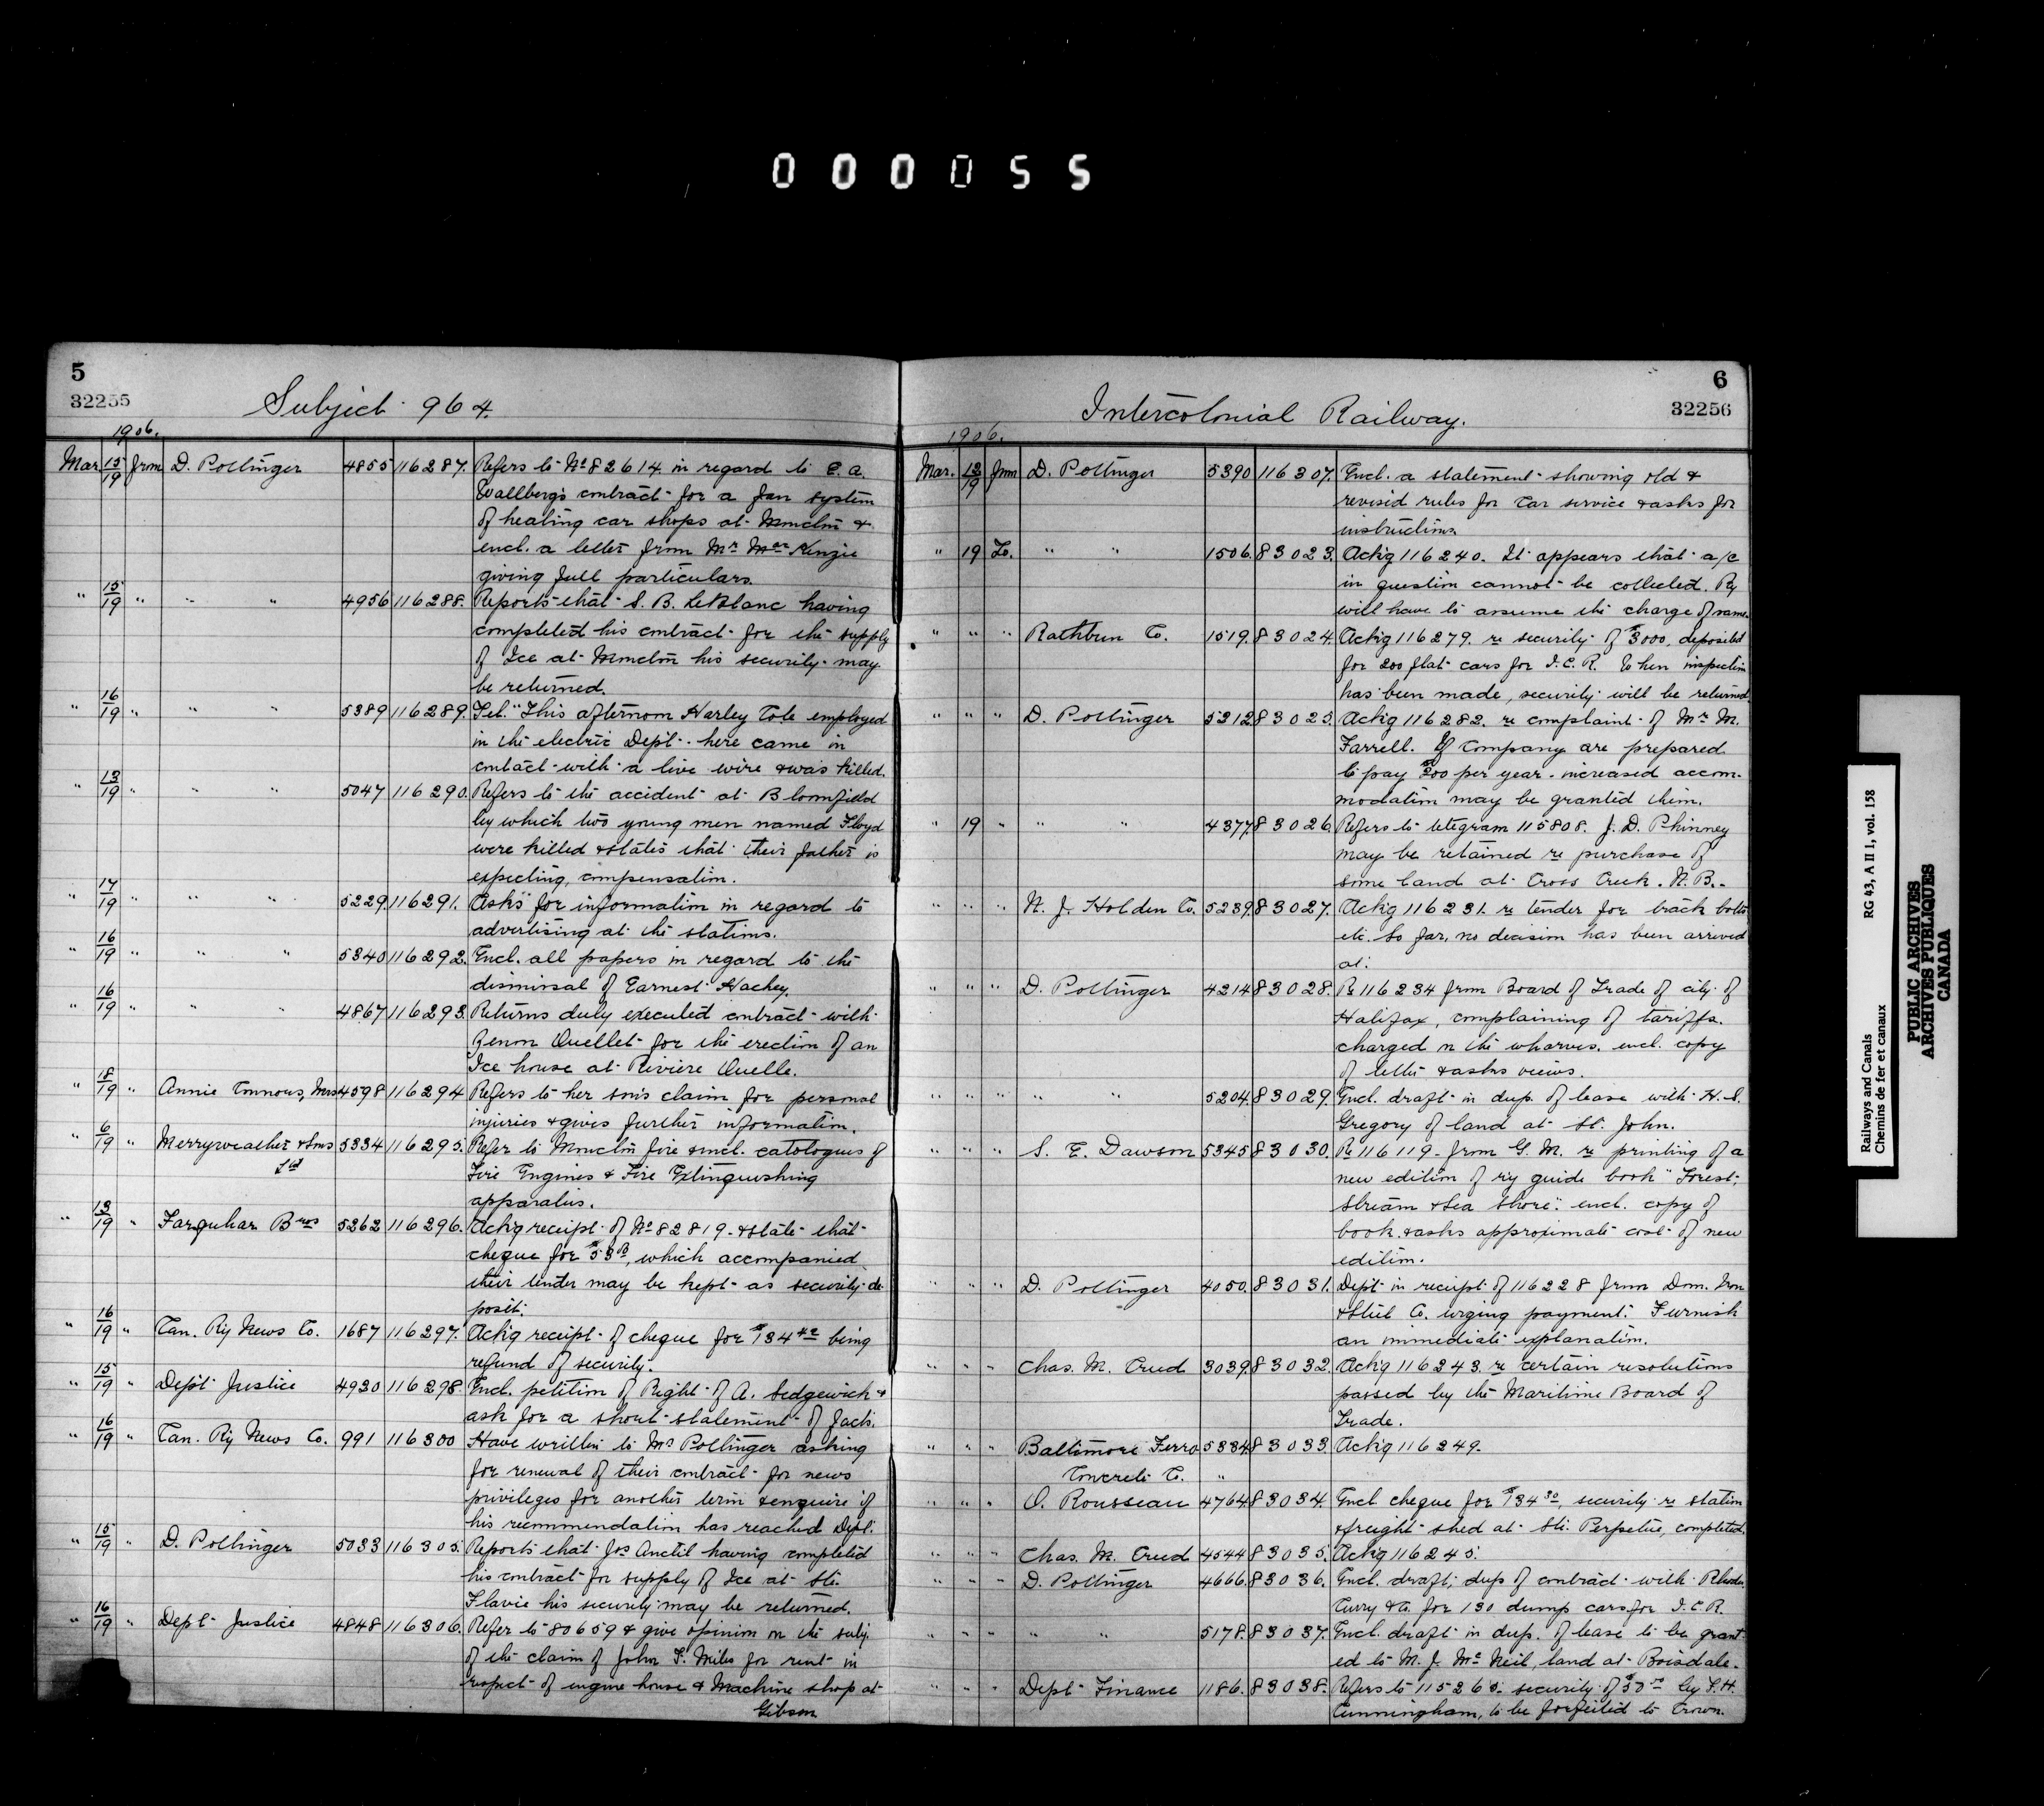 000055
5
32255
Subject 964.
1906.
Mar. 15/19 from D. Pottinger 4855 116287. Refers to No 82614 in regard to E. A.
Wallberg's contract for a fan system
of heating car shops at Moncton &
encl. a letter from Mr MacKenzie
giving full particulars.
" 15/19 " " " 4956 116288. Reports that S. B. LeBlanc having
completed his contract for the supply
of Ice at Moncton his security may
be returned.
" 16/19 " " " 5389 116289. Tel. "This afternoon Harley Cole employed
in the electric Dept. here came in
contact with a live wire & was killed.
" 13/19 " " " 5047 116290. Refers to the accident at Bloomfield
by which two young men named Floyd
were killed & states that their father is
expecting compensation.
" 17/19 " " " 5229 116291. Asks for information in regard to
advertising at the stations.
" 16/19 " " " 5340 116292. Encl. all papers in regard to the
dismissal of Earnest Hachey.
" 16/19 " " " 4867 116293. Returns duly executed contract with
Zenon Ouellet for the erection of an
Ice house at Riviere Ouelle.
" 18/19 " Annie Connors, Mrs 4598 116294 Refers to her son's claim for personal
injuries & gives further information.
" 6/19 " Merryweather & Sons 5334 116295. Refer to Moncton fire & encl. catologues of
Ltd
Fire Engines & Fire Extinguishing
apparatus.
" 13/19 " Farquhar Bros 5262 116296. Ack'g receipt of No 82819 & state that
cheque for $53, which accompanied
their tender may be kept as security de
posit.
" 16/19 " Can. Ry News Co. 1687 116297. Ack'g receipt of cheque for $134 42 being
refund of security.
" 15/19 " Dept Justice 4930 116298. Encl. petition of Right of A. Sedgewick &
ask for a short statement of facts.
" 16/19 " Can. Ry News Co. 991 116300 Have written to Mr Pottinger asking
for renewal of their contract for news
privileges for another term & enquire if
his recommendation has reached Dept.
" 15/19 " D. Pottinger 5033 116305. Reports that Jos Anctil having completed
his contract for supply of Ice at Ste.
Flavie his security may be returned.
" 16/19 " Dept Justice 4848 116306. Refer to 80659 & give opinion on the subj.
of the claim of John T. Miles for rent in
respect of engine house & Machine shop at
Gibson
6
32256
Intercolonial Railway.
1906.
Mar. 13/19 from D. Pottinger 5390 116307. Encl. a statement showing old &
revised rules for Car service & asks for
instructions.
" 19 To. " " 1506. 83023. Ack'g 116240. It appears that a/c
in question cannot be collected. Ry
will have to assume the charge of same.
" " " Rathbun Co. 1519. 83024. Ack'g 116279. re security of $3000, deposited
for 200 flat cars for I.C.R. When inspection
has been made, security will be returned
" " " D. Pottinger 5312 83025. Ack'g 116282. re complaint of Mr M.
Farrell. If Company are prepared
to pay $200 per year increased accom-
modation may be granted them.
" 19 " " " 4377. 83026. Refers to telegram 115808. J. D. Phinney
may be retained re purchase of
some land at Cross Creek. N. B.
" " " N. J. Holden Co. 5239. 83027. Ack'g 116231. re tender for track bolts
etc. So far, no decision has been arrived
at.
" " " D. Pottinger 4214 83028. Re 116234 from Board of Trade of city of
Halifax, complaining of tariffs
charged on the wharves. encl. copy
of letter & asks views.
" " " " " 5204. 83029. Encl. draft in dup. of lease with H. S.
Gregory of land at St. John.
" " " S. E. Dawson 5345 83030. Re 116119 from G. M. re printing of a
new edition of ry guide book "Forest,
Stream & Sea Shore". encl. copy of
book & asks approximate cost of new
edition.
" " " D. Pottinger 4050. 83031. Dept in receipt of 116228 from Dom. Iron
& Steel Co. urging payment. Furnish
an immediate explanation.
" " " Chas. M. Creed 3039. 83032. Ack'g 116243. re certain resolutions
passed by the Maritime Board of
Trade.
" " " Baltimore Ferro 5334. 83033. Ack'g 116249.
Concrete Co. "
" " " O. Rousseau 4764 83034. Encl cheque for $134 30, security re station
& freight shed at Ste. Perpetue, completed.
" " " Chas. M. Creed 4544 83035. Ack'g 116245.
" " " D. Pottinger 4666. 83036. Encl. draft, dup of contract with Rhodes
Curry & Co. for 130 dump cars for I.C.R.
" " " " " 5178. 83037. Encl. draft in dup. of lease to be grant-
ed to M. J. McNeil, land at Boisdale.
" " " Dept Finance 1186. 83038. Refers to 115260. security of by F. H.
Cunningham, to be forfeited to Crown.
Railways and Canals
Chemins de fer et canaux
RG 43, A II 1, vol. 158
PUBLIC ARCHIVES
ARCHIVES PUBLIQUES
CANADA